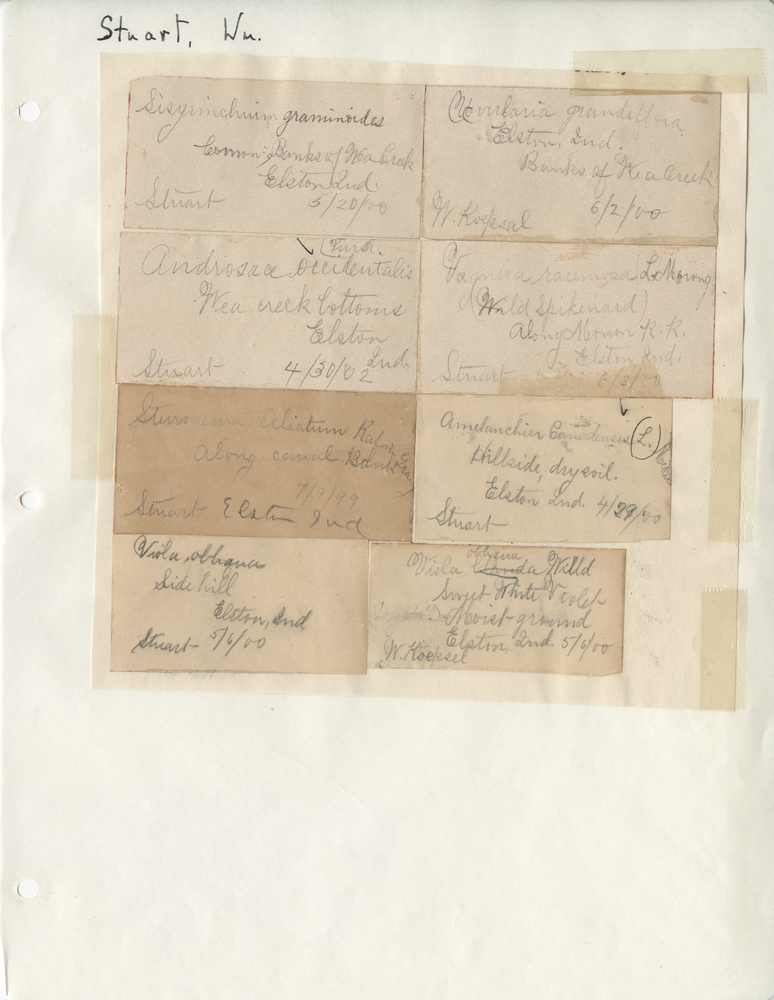 Stuart, Wm.
Sisyrinchium graminoides
Common: Banks of Wea Creek
Elston Ind.
Stuart 5/20/00
Uvularia grandiflora
Elston, Ind.
Banks of Wea Creek
6/2/00
W. Koepsal
Androsace occidentalis Pursh.
Wea creek bottoms
Elston
Ind.
Stuart 4/30/02
Vagnera racemosa (L.) Morong
(Wild Spikenard)
Along Monon R. R.
Elston Ind.
Stuart
Steironema ciliatum
Along canal Bank
7/9/99
Stuart Elston Ind
Amelanchier Canadensis (L.)
Hillside, dry soil.
Elston Ind. 4/29/00
Stuart
Viola obliqua
Side hill
Elston, Ind
Stuart 5/6/00
Viola obliqua Willd
Sweet White Violet
Moist ground
Elston, Ind. 5/6/00
W. Koepsel